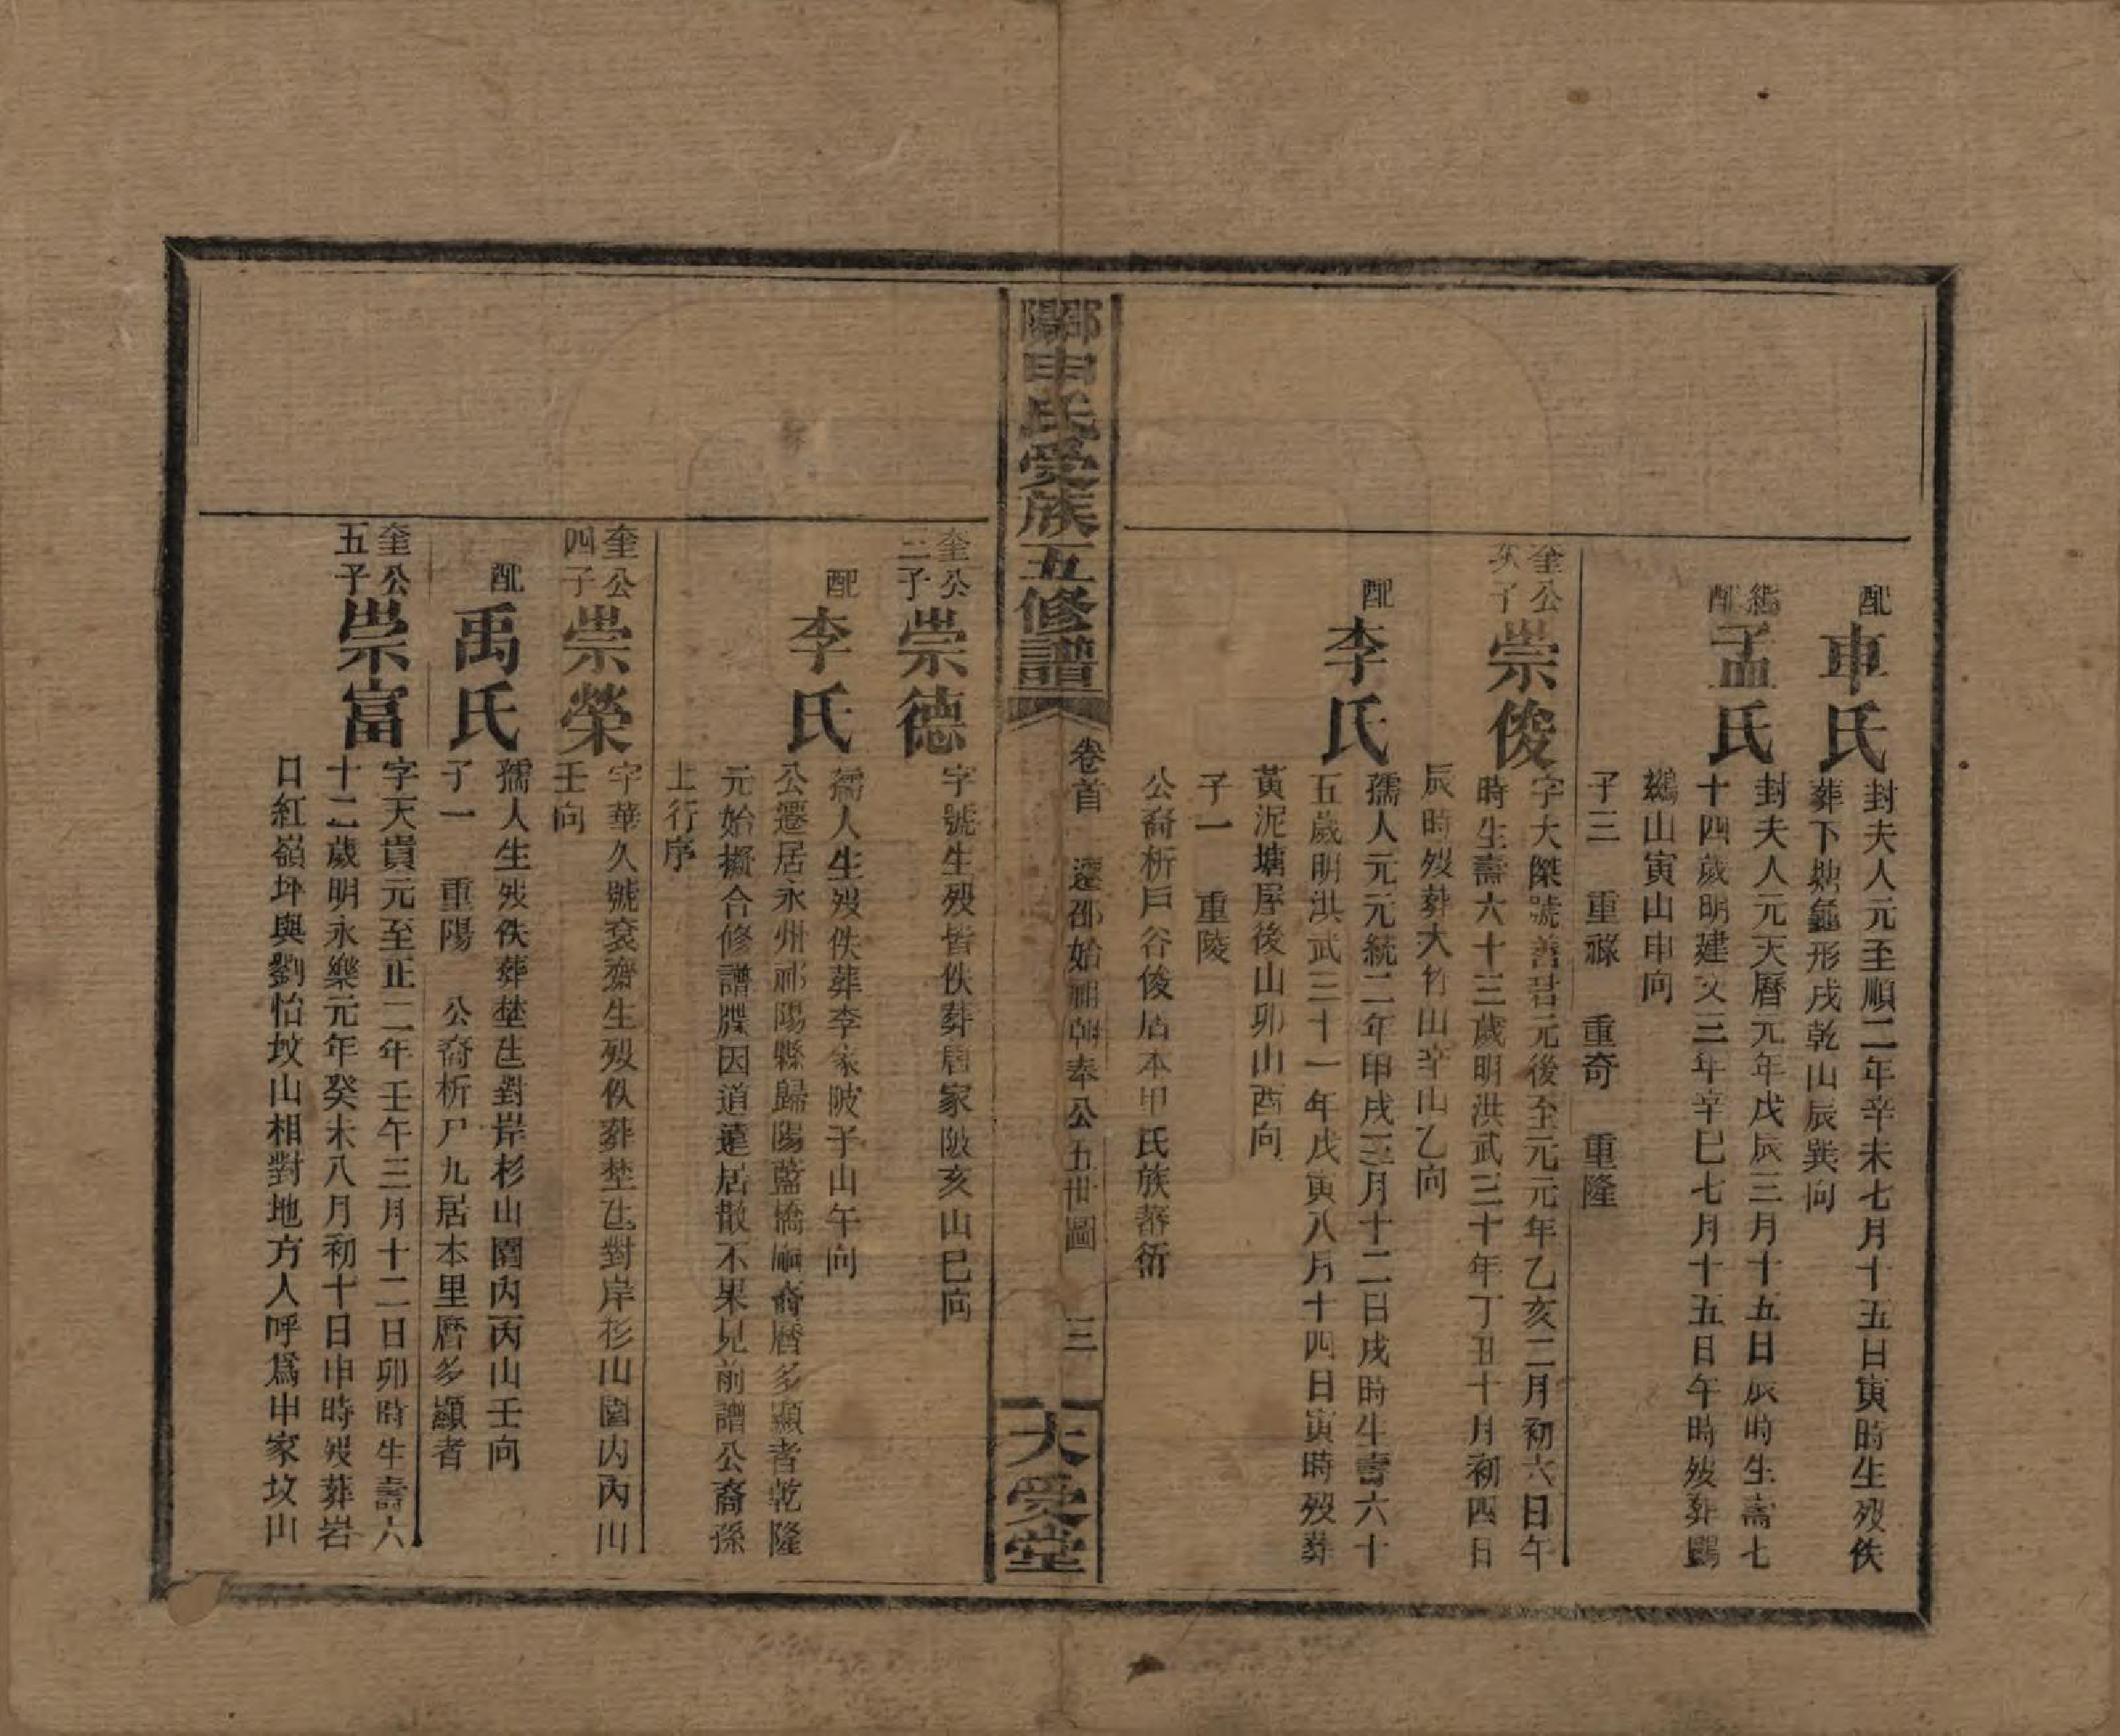 配
車氏
封夫人元至順二年辛未七月十五日寅時生歿佚
葬下塘龜形戌乾山辰巽向
繼配
孟氏
封夫人元天曆元年戊辰三月十五日辰時生壽七
十四歲明建文三年辛巳七月十五日午時歿葬鸕
鷀山寅山申向
子三 重祿 重奇 重隆
奎公次子
崇俊
字大傑號善君元後至元元年乙亥二月初六日午
時生壽六十三歲明洪武三十年丁丑十月初四日
辰時歿葬大竹山辛山乙向
配
李氏
孺人元元統二年甲戌三月十二日戌時生壽六十
五歲明洪武三十一年戊寅八月十四日寅時歿葬
黃泥塘屋後山卯山酉向
子一 重陵
公裔析戶谷俊居本里氏族蕃衍
邵陽申氏受族五修譜
卷首 遷邵始祖朝奉公五世圖 三
大受堂
奎公三子
崇德
字號生歿皆佚葬唐家陂亥山巳向
配
李氏
孺人生歿佚葬李家陂子山午向
公遷居永州祁陽縣歸陽藍橋嗣裔曆多顯者乾隆
元始擬合修譜牒因道遠居散不果見前譜公裔孫
上行序
奎公四子
崇榮
字華久號袞齋生歿佚葬埜乜對岸杉山園內丙山
壬向
配
禹氏
孺人生歿佚葬埜乜對岸杉山園內丙山壬向
子一 重陽 公裔析戶九居本里曆多顯者
奎公五子
崇富
字天貴元至正二年壬午三月十二日卯時生壽六
十二歲明永樂元年癸未八月初十日申時歿葬岩
口紅嶺坪與劉怡坟山相對地方人呼爲申家坟山